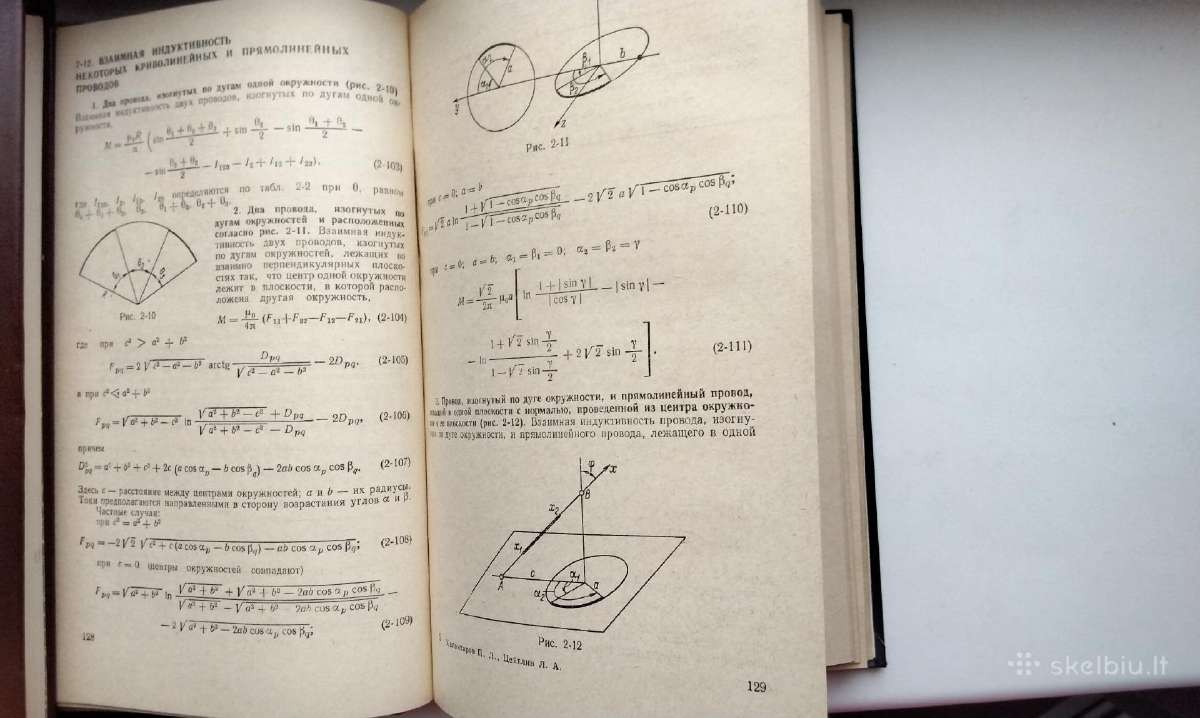 2-12. ВЗАИМНАЯ ИНДУКТИВНОСТЬ
НЕКОТОРЫХ КРИВОЛИНЕЙНЫХ И ПРЯМОЛИНЕЙНЫХ
ПРОВОДОВ
1. Два провода, изогнутых по дугам одной окружности (рис. 2-10)
Взаимная индуктивность двух проводов, изогнутых по дугам одной ок-
ружности,
M = μ₀R/π (sin (θ₁ + θ₂ + θ₃)/2 + sin θ₃/2 − sin (θ₁ + θ₃)/2 −
− sin (θ₃ + θ₂)/2 − I₁₂₃ − I₃ + I₁₃ + I₂₃), (2-103)
определяются по табл. 2-2 при θ, равном
2. Два провода, изогнутых по
дугам окружностей и расположенных
согласно рис. 2-11. Взаимная индук-
тивность двух проводов, изогнутых
по дугам окружностей, лежащих во
взаимно перпендикулярных плоско-
стях так, что центр одной окружности
лежит в плоскости, в которой распо-
ложена другая окружность,
Рис. 2-10
M = μ₀/4π (F₁₁ + F₂₂ − F₁₂ − F₂₁), (2-104)
где при c² > a² + b²
Fpq = 2 √(c² − a² − b²) arctg Dpq/√(c² − a² − b²) − 2Dpq, (2-105)
и при c² < a² + b²
Fpq = √(a² + b² − c²) ln (√(a² + b² − c²) + Dpq)/(√(a² + b² − c²) − Dpq) − 2Dpq, (2-106)
причем
D²pq = a² + b² + c² + 2c (a cos αp − b cos βq) − 2ab cos αp cos βq. (2-107)
Здесь c — расстояние между центрами окружностей; a и b — их радиусы.
Токи предполагаются направленными в сторону возрастания углов α и β.
Частные случаи:
при c² = a² + b²
Fpq = −2√2 √(c² + c (a cos αp − b cos βq) − ab cos αp cos βq); (2-108)
при c = 0 (центры окружностей совпадают)
Fpq = √(a² + b²) ln (√(a² + b²) + √(a² + b² − 2ab cos αp cos βq))/(√(a² + b²) − √(a² + b² − 2ab cos αp cos βq)) −
− 2 √(a² + b² − 2ab cos αp cos βq); (2-109)
128
α₂ a α₁ y
β₁ b β₂ z
Рис. 2-11
при c = 0; a = b
Fpq = √2 a ln (1 + √(1 − cos αp cos βq))/(1 − √(1 − cos αp cos βq)) − 2√2 a √(1 − cos αp cos βq); (2-110)
при c = 0; a = b; α₁ = β₁ = 0; α₂ = β₂ = γ
M = √2/2π μ₀a [ln (1 + |sin γ|)/|cos γ| − |sin γ| −
− ln (1 + √2 sin γ/2)/(1 − √2 sin γ/2) + 2√2 sin γ/2]. (2-111)
3. Провод, изогнутый по дуге окружности, и прямолинейный провод,
лежащий в одной плоскости с нормалью, проведенной из центра окружно-
сти к ее плоскости (рис. 2-12). Взаимная индуктивность провода, изогну-
того по дуге окружности, и прямолинейного провода, лежащего в одной
φ x
B
x₂
x₁
A c α₁ a
α₂
Рис. 2-12
5 Калантаров П. Л., Цейтлин Л. А.
129
skelbiu.lt